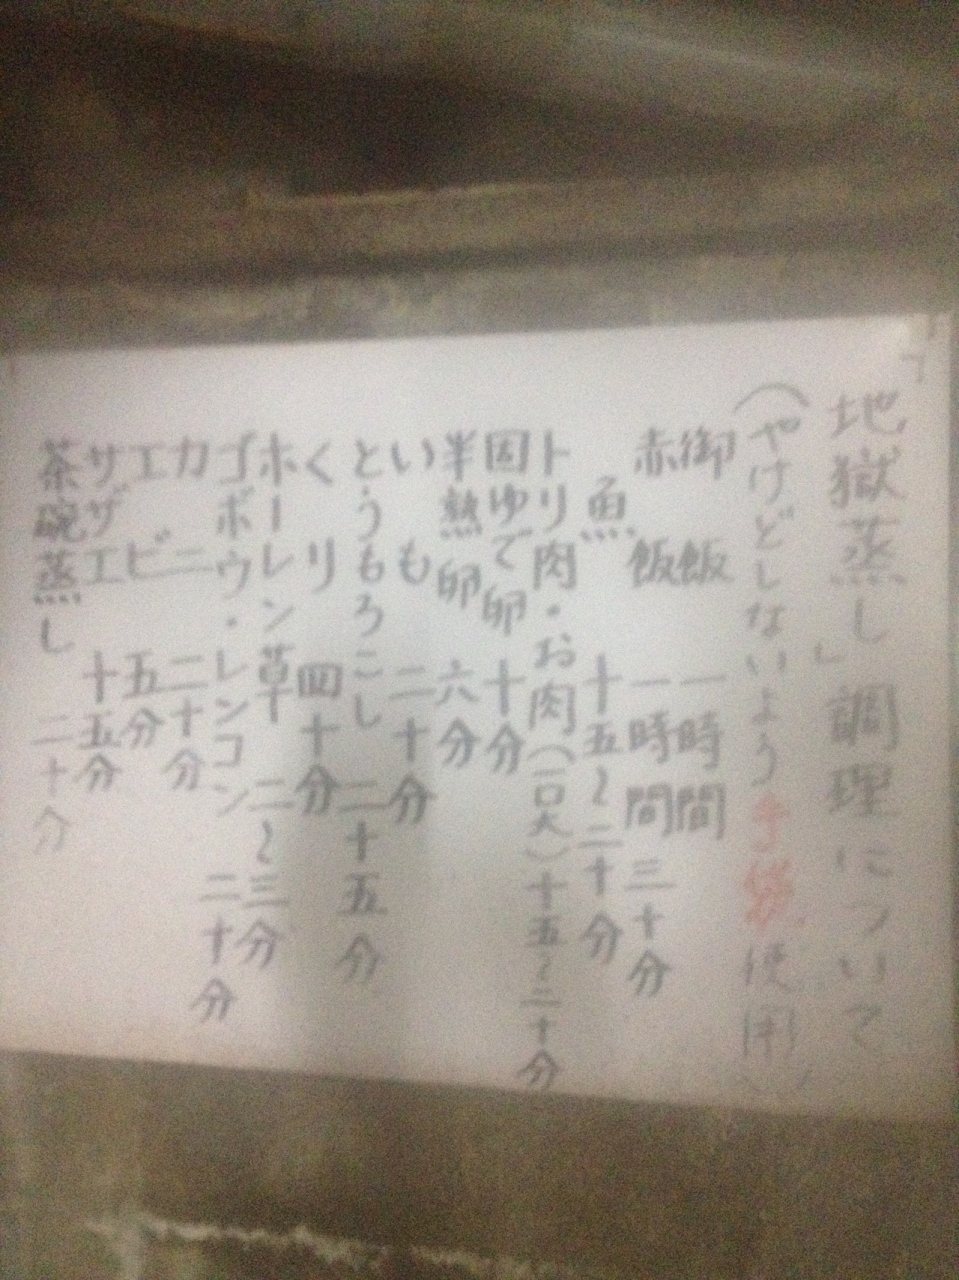 「地獄蒸し」調理について
（やけどしないよう手袋使用）
御飯 一時間
赤飯 一時間三十分
魚 十五～二十分
トリ肉・お肉（一口大）十五～二十分
固ゆで卵 十分
半熟卵 六分
いも 二十分
とうもろこし 二十五分
くり 四十分
ホーレン草 二～三分
ゴボウ・レンコン 二十分
カニ 二十分
エビ 五分
サザエ 十五分
茶碗蒸し 二十分